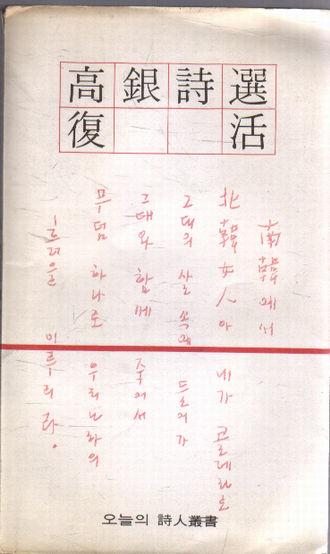 高銀詩選
復活
南韓에서
北韓女人아 내가 콜레라로
그대의 살 속에 들어가
그대와 함께 죽어서
무덤 하나로 우리나라의
이루리라。
오늘의 詩人叢書